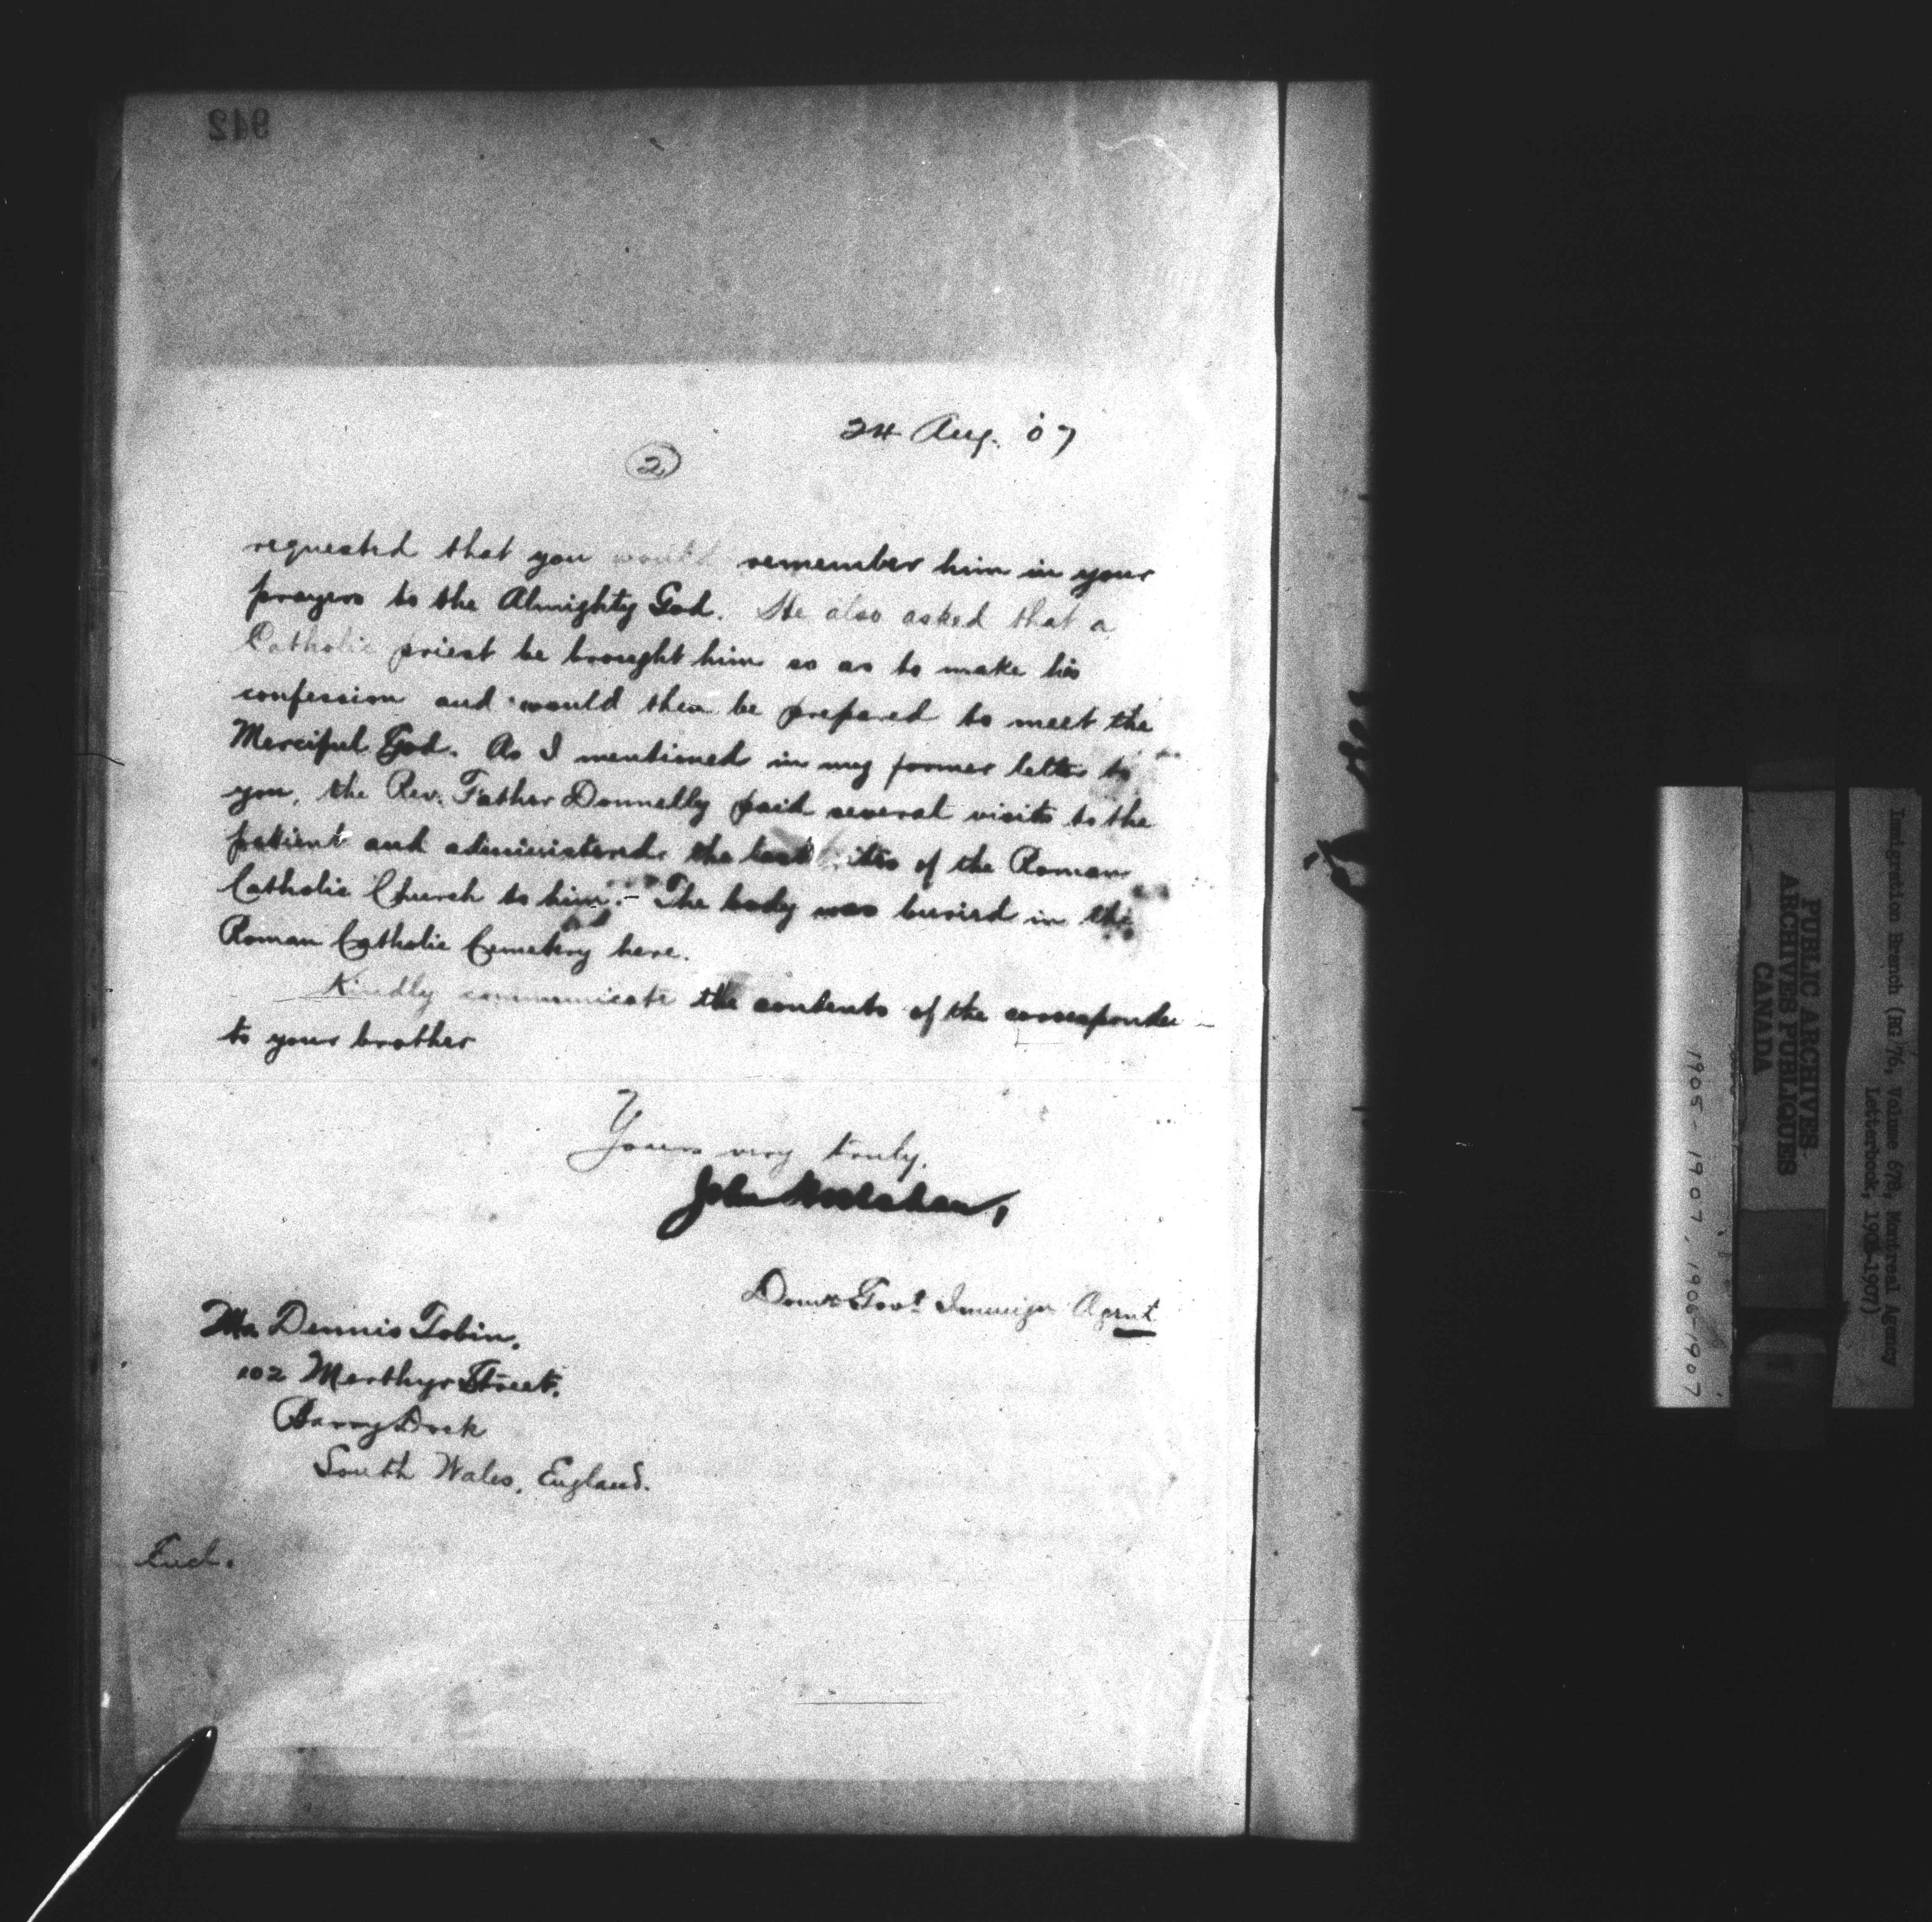 942
24 Aug. '07
2
requested that you would remember him in your
prayers to the Almighty God. He also asked that a
Catholic priest be brought him so as to make his
confession and would then be prepared to meet the
Merciful God. As I mentioned in my former letter to
you, the Rev. Father Donnelly paid several visits to the
patient and administered the last rites of the Roman
Catholic Church to him. - The body was buried in the
Roman Catholic Cemetery here.
Kindly communicate the contents of the
to your brother
Yours very truly,
John
Agent
Mr Dennis Tobin,
102 Merthyr Street,
Barry Dock
South Wales, England.
Encl.
1905-1907, 1906-1907
PUBLIC ARCHIVES
ARCHIVES PUBLIQUES
CANADA
Immigration Branch (RG 76, Volume 678, Montreal Agency
Letterbook, 1905-1907)